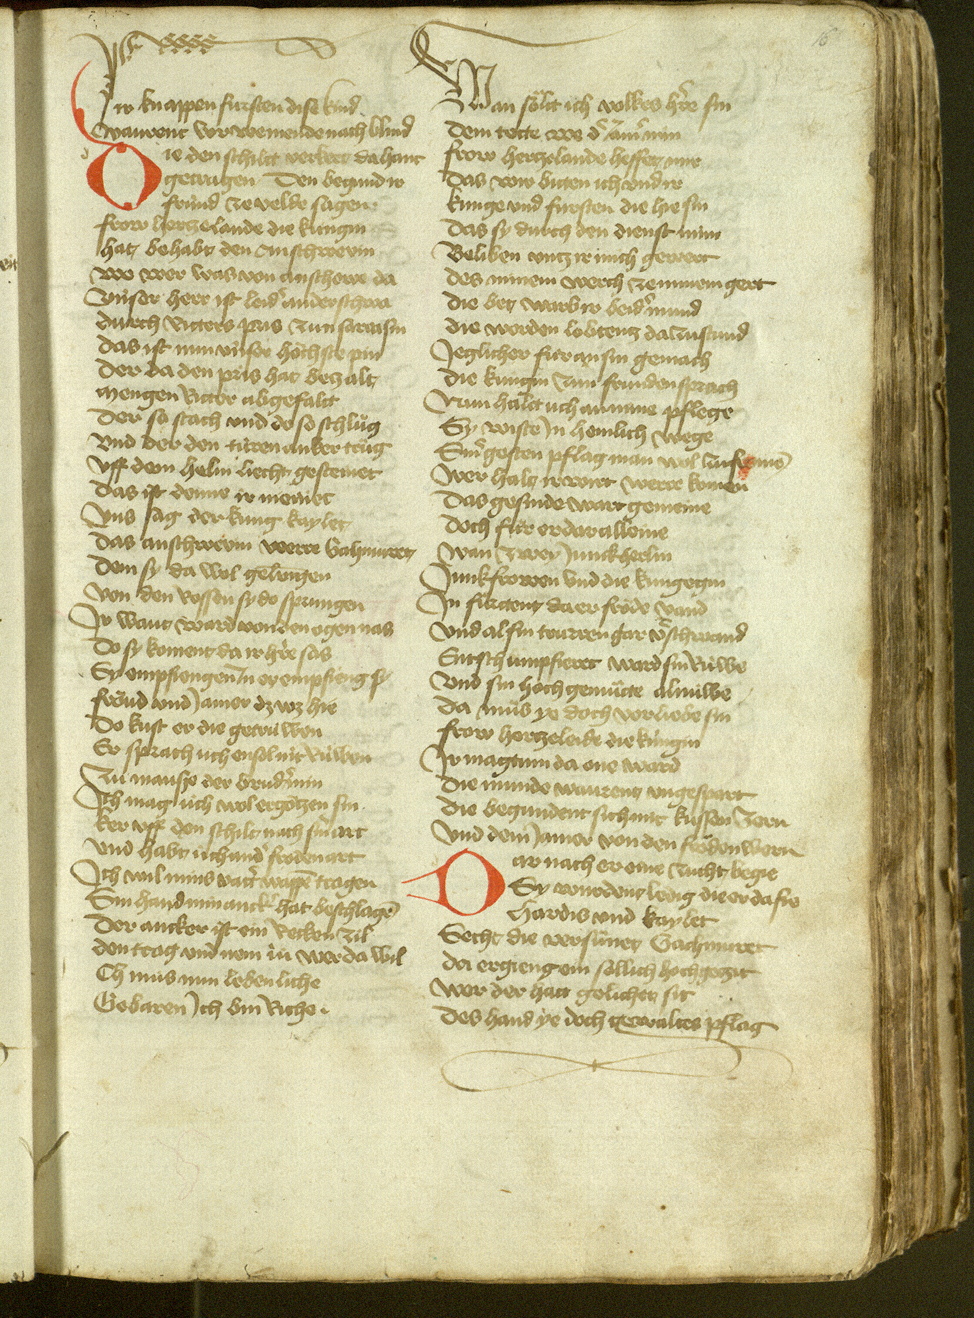 Ir knappen fürsten dise kind
Warent vor weinende nach blind
Die den schilt verkert da hant
getragen Den begund ir
fründ ze velde sagen
frow hertzelande die küngin
hat behabt den Anschwevin
wo wer was von anschowe da
Vnser herr ist laider anderschwa
durch Ritters pris zun sarrasin
das ist nun vnser höchste pin
Der da den pris hat bezalt
Mengen Ritter abgefalt
Der so stach vnd der so schlůg
Vnd der den türen anker trůg
Vff dem helm liecht gesteinet
Das ist denne ir meinet
Vns sag der küng kaylet
Das anschwevin werre Gahmuret
Dem sy da wol gelingen
Von den Rossen sy do sprungen
Ir want ward von den ogen nas
Do sy koment da ir hre sas
Sy empfiengen Jn er empfieng sy
fröud vnd Jamer dz wz hie
Do kust er die getrüwen
Er sprach uch ensol nit Rüwen
Zu mausse der brudr min
Jch mag uch wol ergötzen sin
ker vff den schilt nach sinr art
Vnd habt uch andr fröden art
Jch wil mins vattr wappē tragen
Sin hand min anckr hat beschlagē
Der ancker ist ein Recken zil
den trag vnd nem in wer da wil
Ch můs nun lebenliche
Gebaren Jch bin Riche
Wan sölt ich volkes hre sin
Dem tette we dr Jamr min
frow hertzelande helffet mir
Das wir biten ich vnd ir
künge vnd fürsten die hie sin
Das sy durch den dienst min
Beliben vntz ir mich gewert
des minem werch ze minnem gert
Die bet warb ir beidr mund
die worden lobtentz da zustund
Jeglicher für an sin gemach
die küngin zun fründen sprach
Nun halt uch an mine pflege
Sy wiste Jn heinlich wege
Sinr gesten pflag man wol
Wer halt ir wirt werre komen
Das gesinde wart gemeine
Doch für er dar alleine
Wan zwey Junckherlin
Junkfrowen vnd die küngegin
Jn fürtent da er fröde vand
Vnd al sin truren gar vrschwand
Entschumpfieret ward sin Rüwe
Vnd sin hochgemüte al nüwe
Da můs ye doch vorliebe sin
frow hertzeleide die küngin
Jr magtum da one ward
Die munde warent vngespart
die begundent sich mit küssen zern
Vnd dem Jamer von den fröden wern
Dar nach er eine zucht begie
Sy wurdent ledig die er da fie
Hardis vnd kaylet
Secht die versünet Gachmuret
da ergieng ein söllich hochgezit
Wer der hatt gelichet sit
Des hand ye doch gewaltes pflag